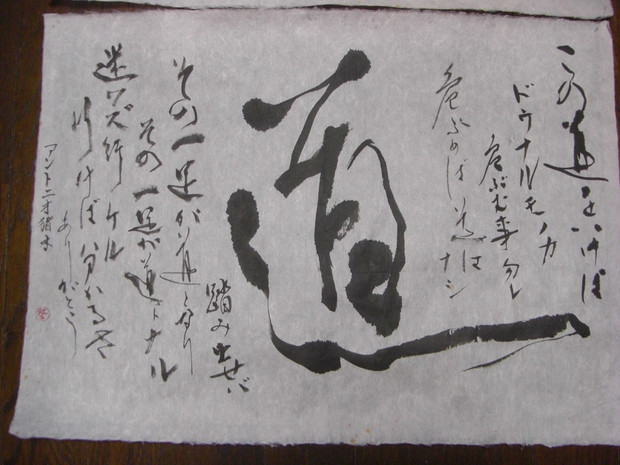 この道をいけば
ドウナルモノカ
危ぶむ事勿レ
危ぶめば道はナシ
道
踏み出せバ
その一足が道となり
その一足が道トナル
迷ワズ行ケル
行けば分かるさ
ありがとう
アントニオ猪木